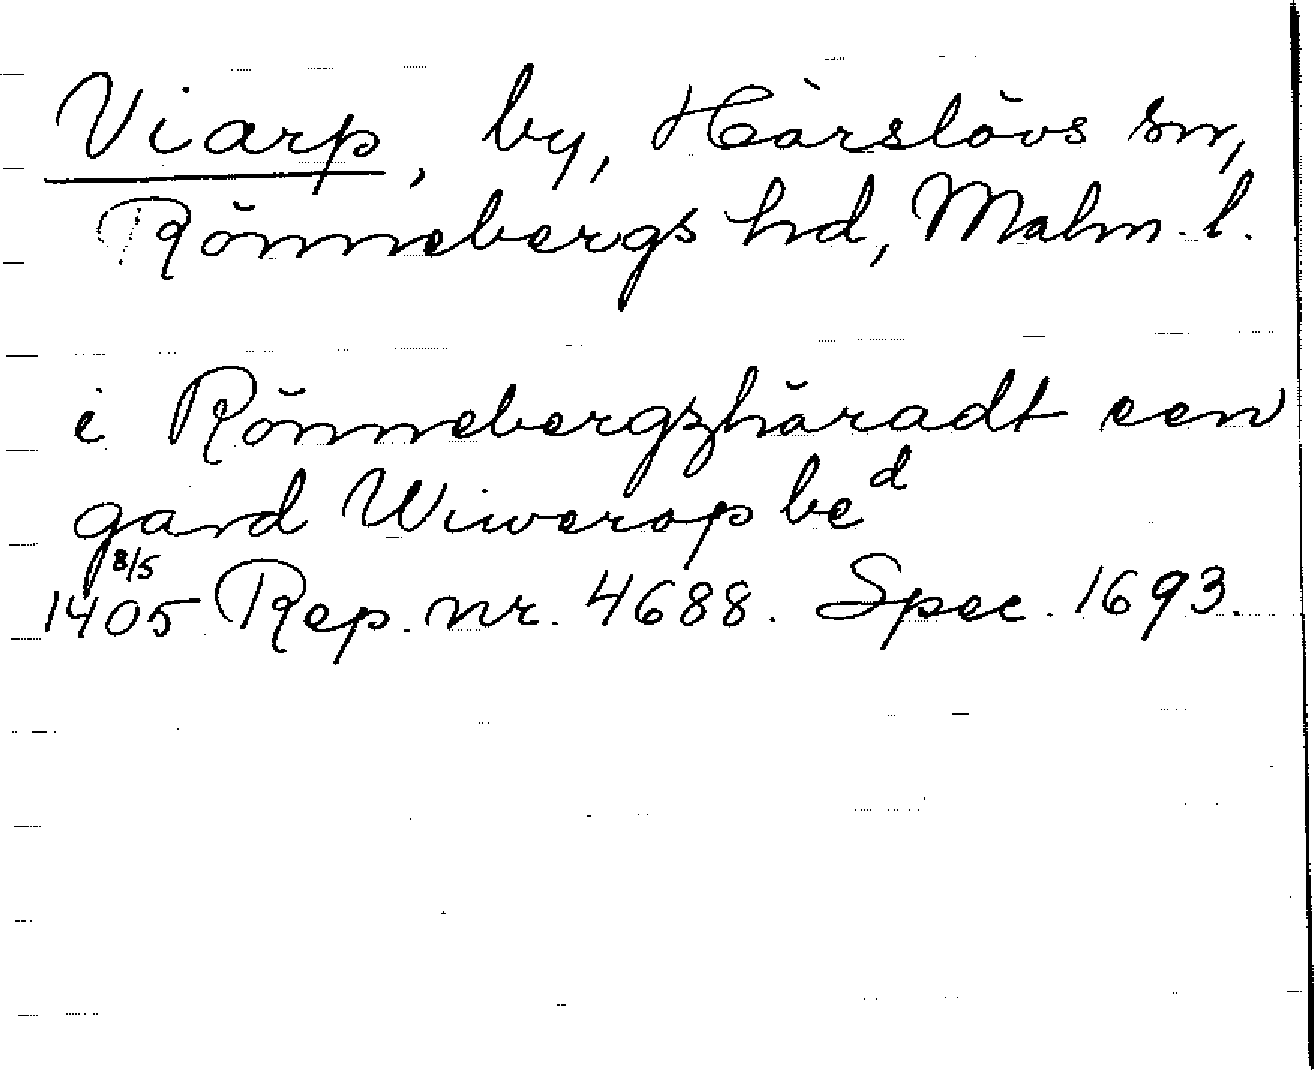 Viarp, by, Härslövs sn,
Rönnebergs hd, Malm. l.
i Rönnebergzhäradt een
gard Wiwerop be^d
1405 8/5 Rep. nr. 4688. Spec. 1693.